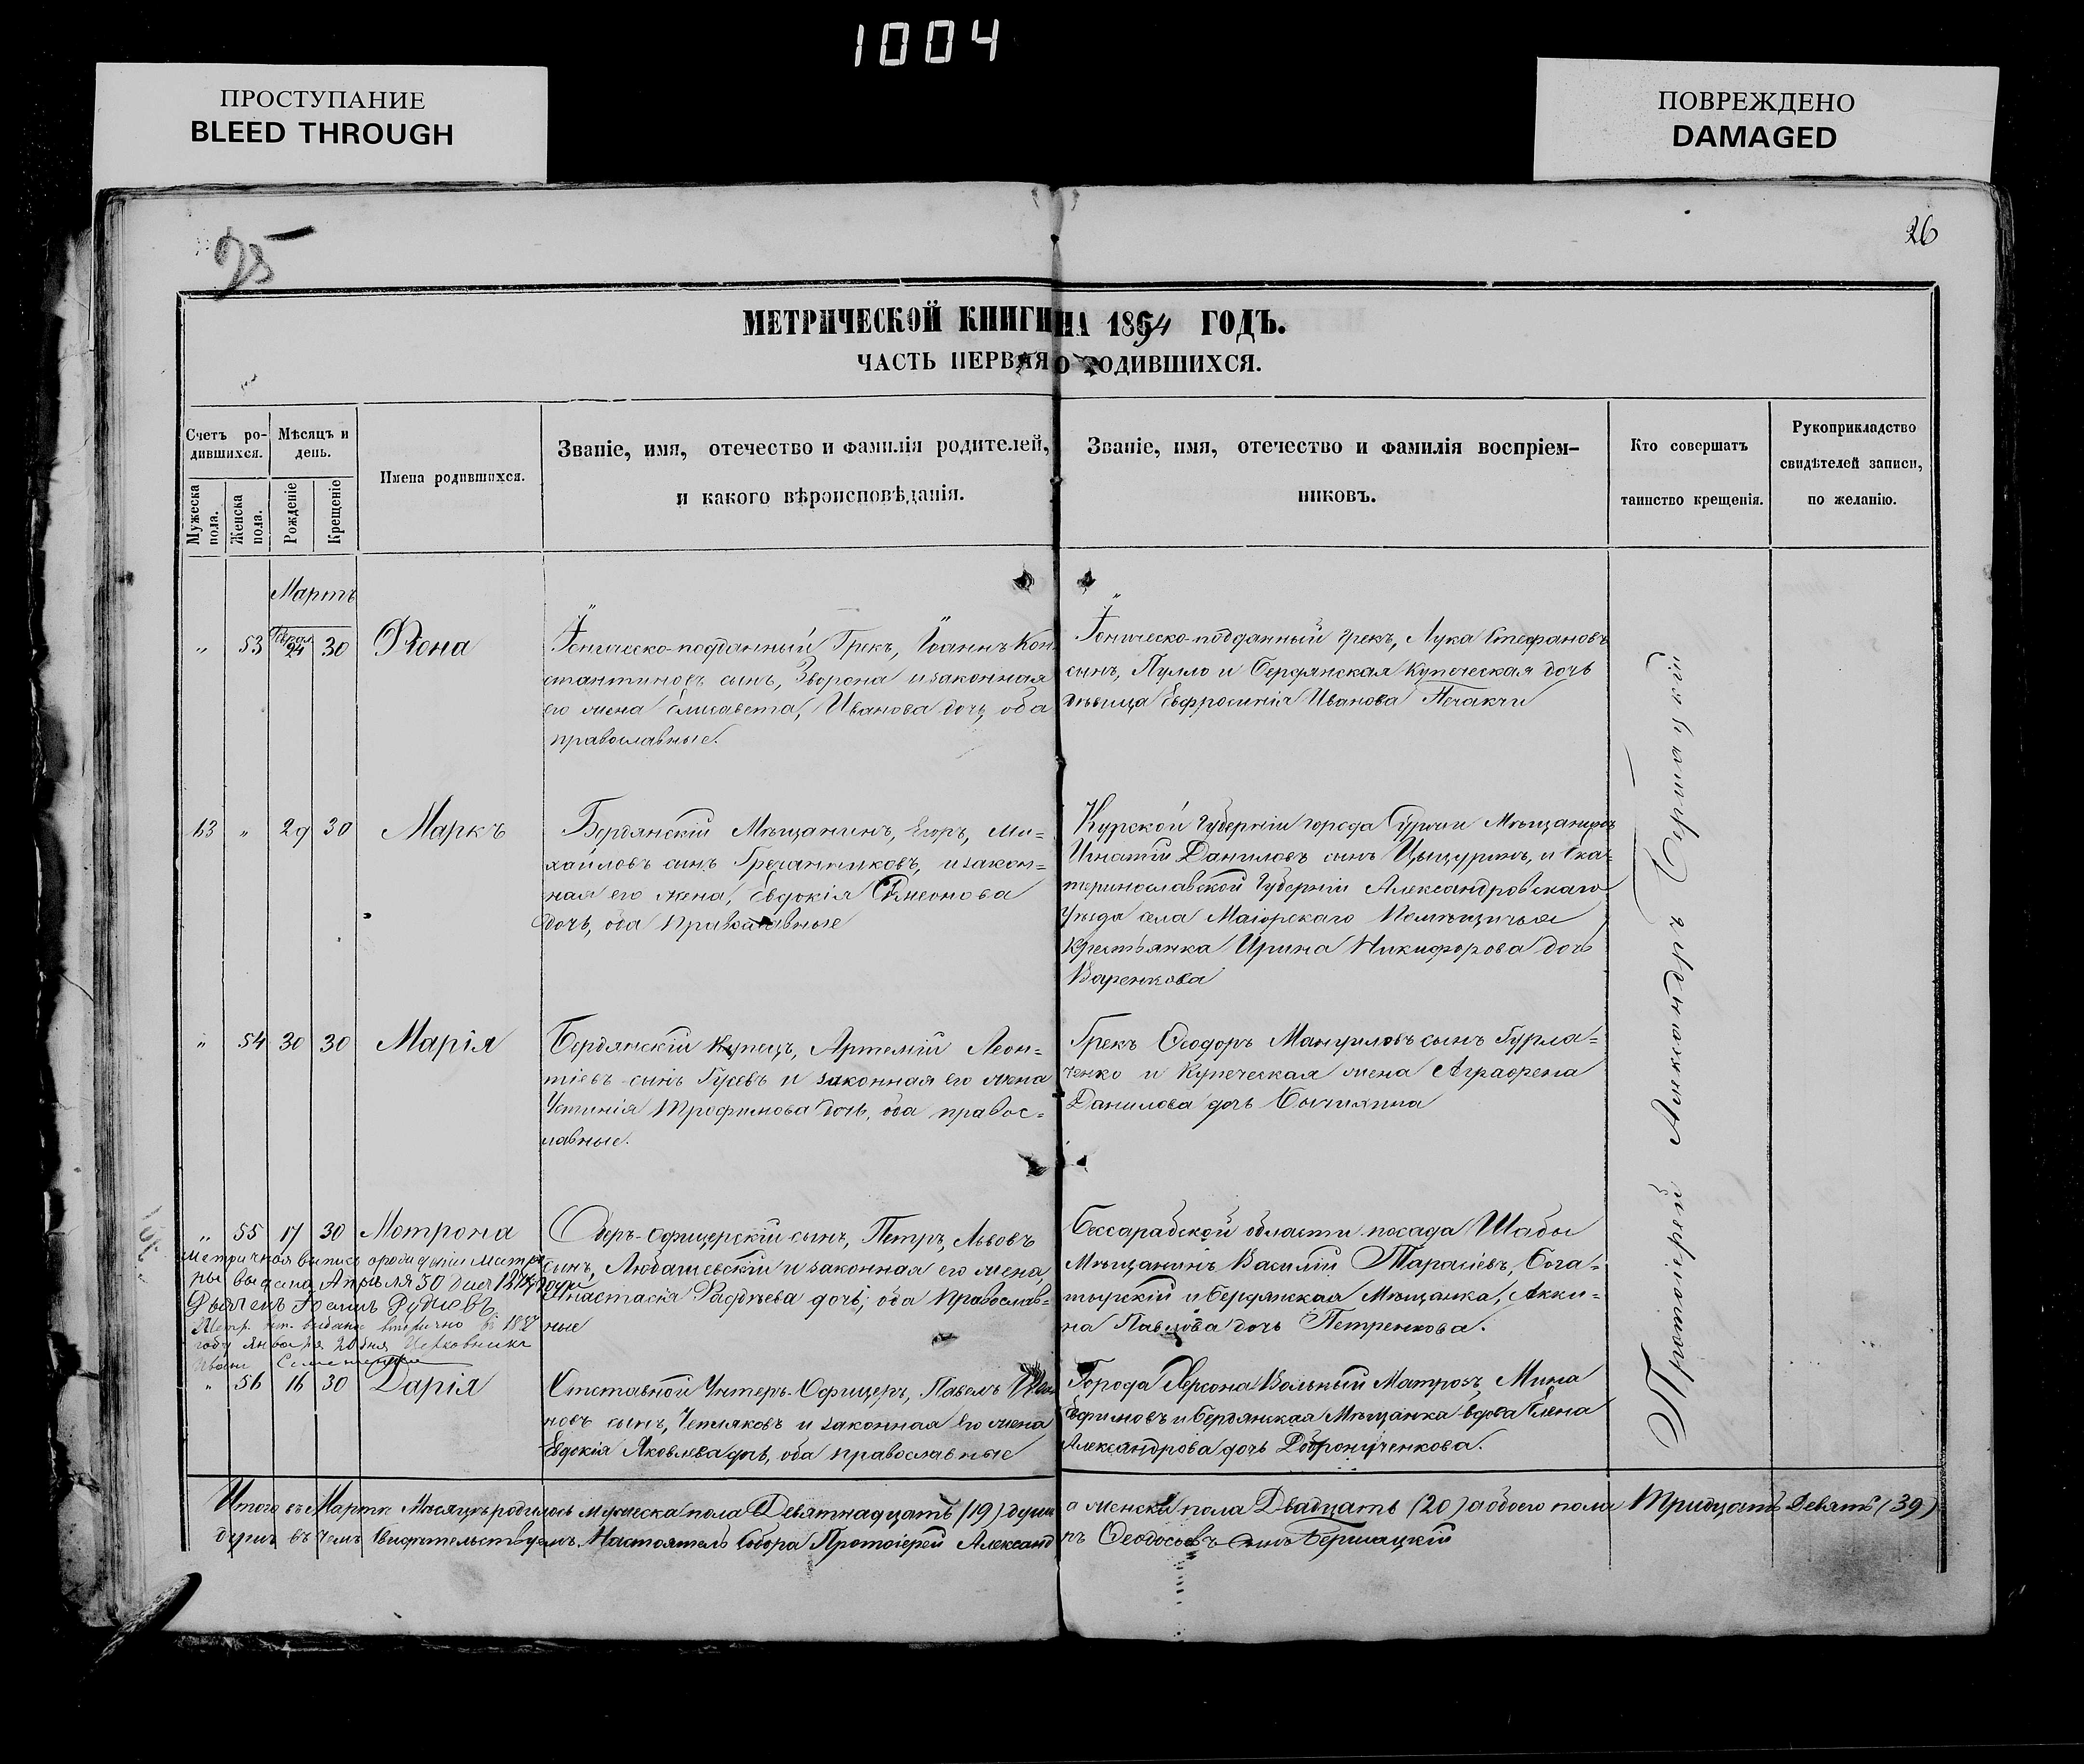 1004
ПРОСТУПАНИЕ
BLEED THROUGH
ПОВРЕЖДЕНО
DAMAGED
25
26
МЕТРИЧЕСКОЙ КНИГИ НА 1864 ГОДЪ.
ЧАСТЬ ПЕРВАЯ О РОДИВШИХСЯ.
Счетъ ро-
дившихся.
Мужеска пола.
Женска пола.
Мѣсяцъ и
день.
Рожденіе
Крещеніе
Имена родившихся.
Званіе, имя, отечество и фамилія родителей,
и какого вѣроисповѣданія.
Званіе, имя, отечество и фамилія воспріем-
никовъ.
Кто совершатъ
таинство крещенія.
Рукоприкладство
свидѣтелей записи,
по желанію.
Мартъ
" 53 24 30
Іоническо-подданный Грекъ, Іоаннъ Кон-
стантиновъ сынъ, Зворона и законная
его жена Елисавета, Иванова дочь, оба
православные.
Іоническо-подданный грекъ, Лука Стефановъ
сынъ, Пулло и Бердянская Купеческая дочь
дѣвица Евфросинія Иванова
" 29 30 Маркъ
Бердянскій Мѣщанинъ, Егоръ, Ми-
хайловъ сынъ Гречанниковъ, и закон-
ная его жена, Евдокія Симеонова
дочь, оба православные
Курской Губерніи города Мѣщанинъ
Игнатій Даниловъ сынъ и Ека-
теринославской Губерніи Александровскаго
Уѣзда села Маіорскаго Помѣщичья
Крестьянка Ирина Никифорова дочь
Варенкова
" 54 30 30 Марія
Бердянскій Купецъ, Артемій Леон-
тіевъ сынъ Гусевъ и законная его жена
Устинія Трофимова дочь, оба правос-
лавные.
Грекъ Феодоръ Мануиловъ сынъ Гурла-
ченко и Купеческая жена Аграфена
Данилова дочь
" 55 17 30 Мотрона
Оберъ-Офицерскій сынъ, Петръ, Львовъ
сынъ, Любашевскій и законная его жена,
Анастасія Фадѣева дочь, оба Православ-
ные
Бессарабской области посада Шабы
Мѣщанинъ Василій Тарасіевъ, Бога-
тырскій и Бердянская Мѣщанка, Акки-
на Павлова дочь Петренкова.
Метричная выпись о рожденіи Матро-
ны выдана Апрѣля 30 дня
Метр. выдана вторично
года Января 20 дня
" 56 16 30 Дарія
Отставной Унтеръ-Офицеръ, Павелъ Ива-
новъ сынъ, и законная его жена
Евдокія Яковлева дочь, оба православные
Города Херсона Вольный Матросъ, Мина
Ефимовъ и Бердянская Мѣщанка вдова Елена
Александрова дочь
Протоіерей Александръ Бершацкій
Итого въ Мартѣ Мѣсяцѣ родилось мужеска пола Девятнадцать (19) душъ а женска пола Двадцать (20) а обоего пола Тридцать девять (39)
душъ въ чемъ свидѣтельствуемъ. Настоятель Собора Протоіерей Александръ Феодосіевъ сынъ Бершацкій